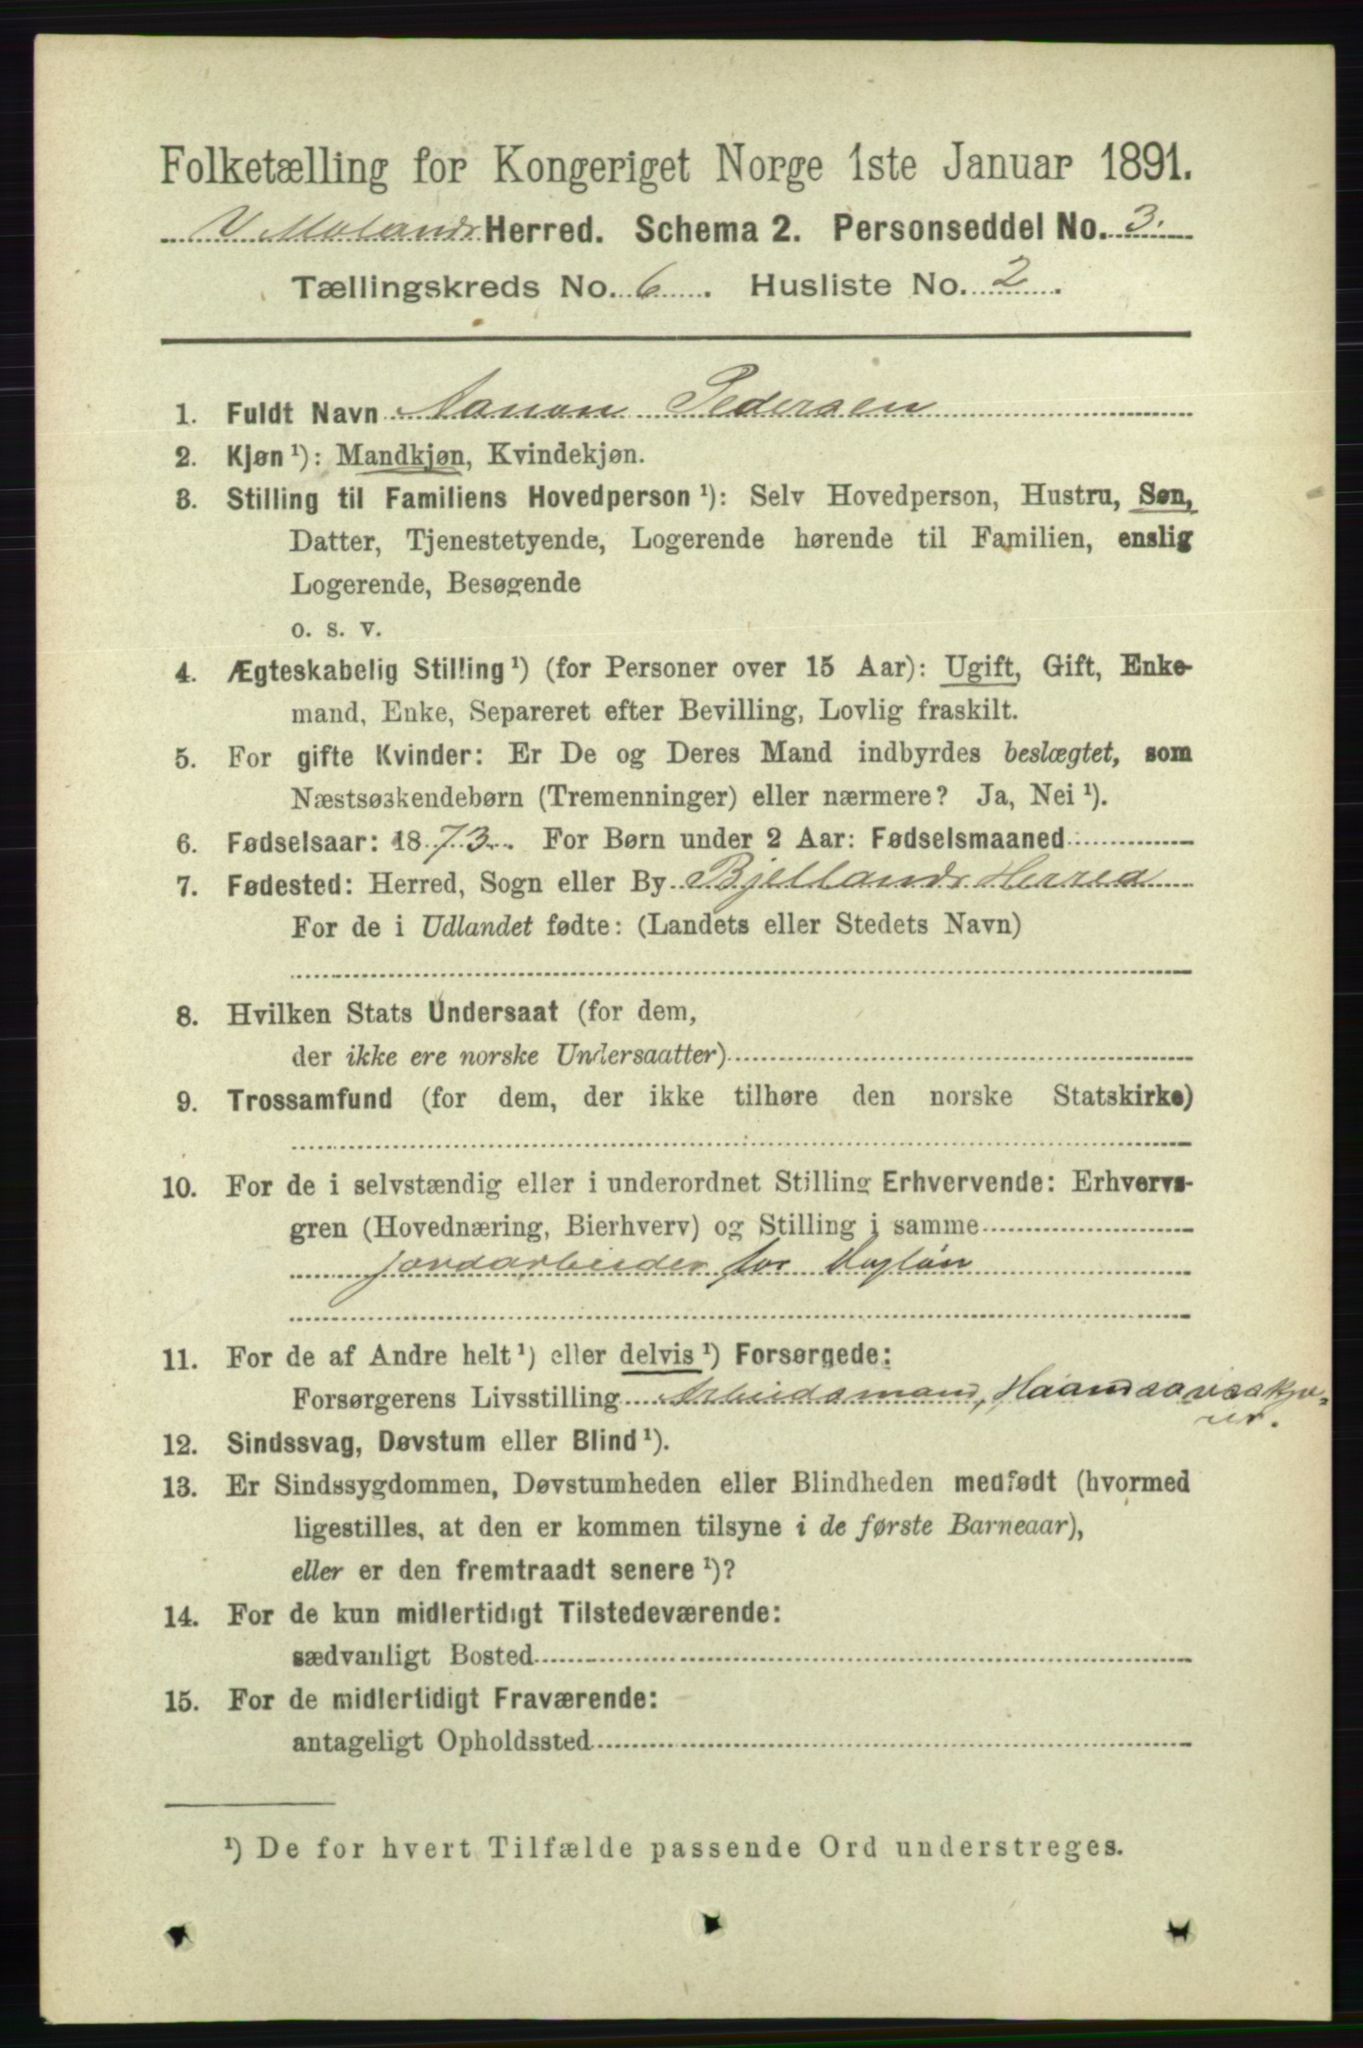 Folketælling for Kongeriget Norge 1ste Januar 1891.
V. Molands Herred. Schema 2. Personseddel No. 3.
Tællingskreds No. 6. Husliste No. 2.
1. Fuldt Navn Aanon Pedersen
2. Kjøn ¹): Mandkjøn, Kvindekjøn.
3. Stilling til Familiens Hovedperson ¹): Selv Hovedperson, Hustru, Søn,
Datter, Tjenestetyende, Logerende hørende til Familien, enslig
Logerende, Besøgende
o. s. v.
4. Ægteskabelig Stilling ¹) (for Personer over 15 Aar): Ugift, Gift, Enke-
mand, Enke, Separeret efter Bevilling, Lovlig fraskilt.
5. For gifte Kvinder: Er De og Deres Mand indbyrdes beslægtet, som
Næstsøskendebørn (Tremenninger) eller nærmere? Ja, Nei ¹).
6. Fødselsaar: 1873. For Børn under 2 Aar: Fødselsmaaned
7. Fødested: Herred, Sogn eller By Bjellands Herred
For de i Udlandet fødte: (Landets eller Stedets Navn)
8. Hvilken Stats Undersaat (for dem,
der ikke ere norske Undersaatter)
9. Trossamfund (for dem, der ikke tilhøre den norske Statskirke)
10. For de i selvstændig eller i underordnet Stilling Erhvervende: Erhvervs-
gren (Hovednæring, Bierhverv) og Stilling i samme
Jordarbeider for Dagløn
11. For de af Andre helt ¹) eller delvis ¹) Forsørgede:
Forsørgerens Livsstilling Arbeidsmand,
12. Sindssvag, Døvstum eller Blind ¹).
13. Er Sindssygdommen, Døvstumheden eller Blindheden medfødt (hvormed
ligestilles, at den er kommen tilsyne i de første Barneaar),
eller er den fremtraadt senere ¹)?
14. For de kun midlertidigt Tilstedeværende:
sædvanligt Bosted
15. For de midlertidigt Fraværende:
antageligt Opholdssted
¹) De for hvert Tilfælde passende Ord understreges.